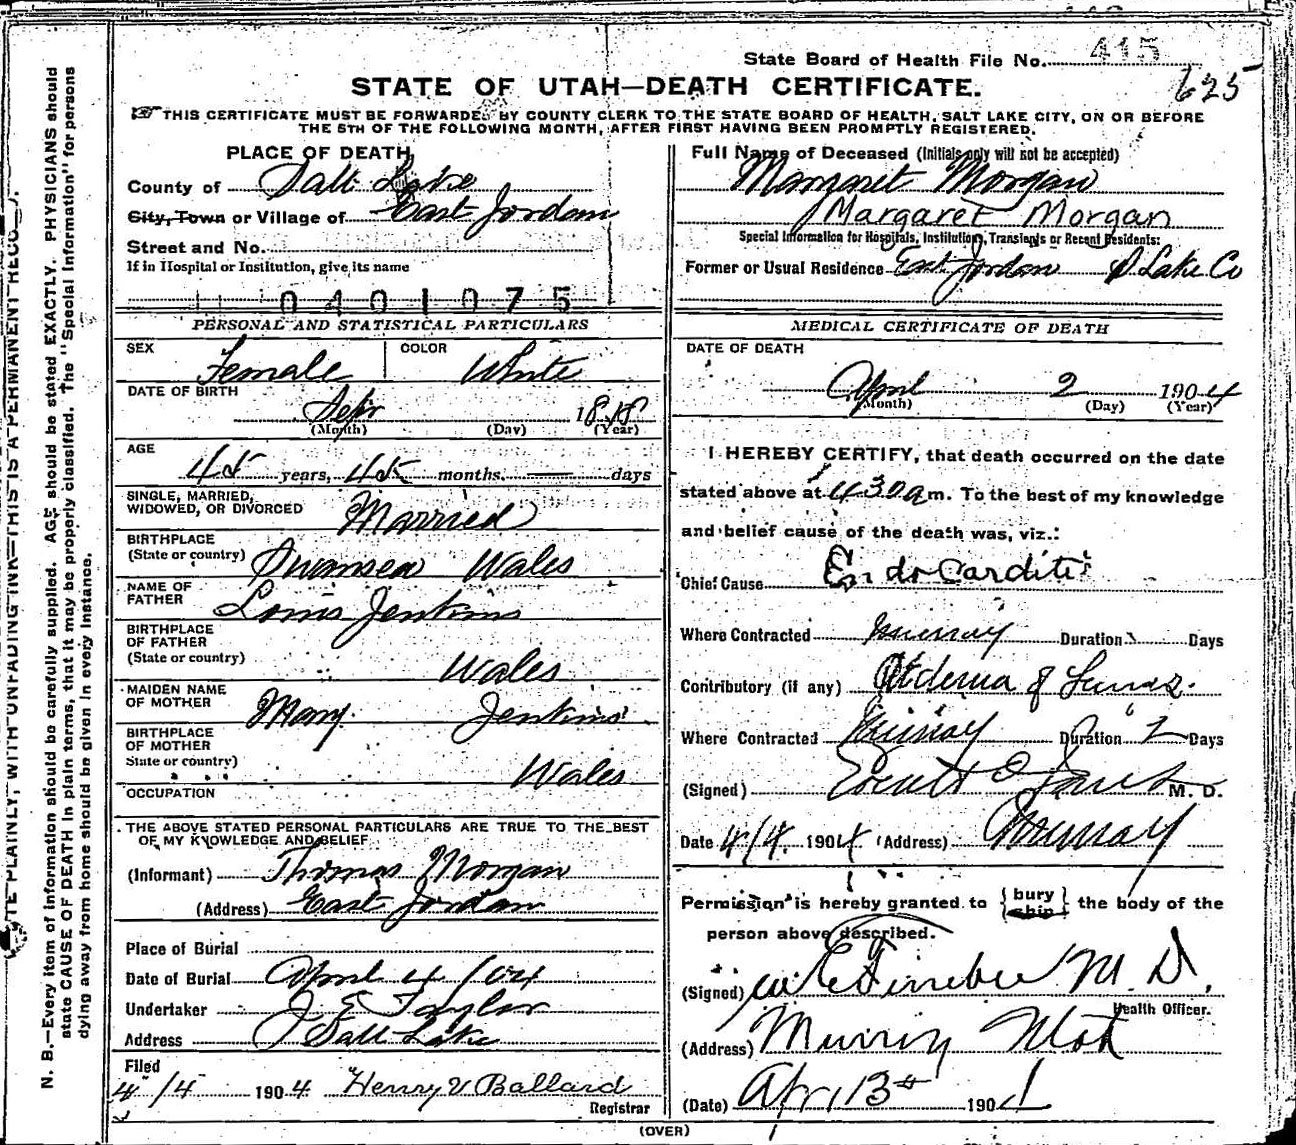 415
State Board of Health File No.
625
STATE OF UTAH—DEATH CERTIFICATE.
THIS CERTIFICATE MUST BE FORWARDED BY COUNTY CLERK TO THE STATE BOARD OF HEALTH, SALT LAKE CITY, ON OR BEFORE
THE 5TH OF THE FOLLOWING MONTH, AFTER FIRST HAVING BEEN PROMPTLY REGISTERED.
PLACE OF DEATH
County of Salt Lake
City, Town or Village of East Jordan
Street and No.
If in Hospital or Institution, give its name
0401075
Full Name of Deceased (Initials only will not be accepted)
Margaret Morgan
Margaret Morgan
Special Information for Hospitals, Institutions, Transients or Recent Residents:
Former or Usual Residence East Jordan S. Lake Co
PERSONAL AND STATISTICAL PARTICULARS
SEX Female COLOR White
DATE OF BIRTH
Sept 18
(Month) (Day) (Year)
AGE
45 years, months. days
SINGLE, MARRIED,
WIDOWED, OR DIVORCED Married
BIRTHPLACE
(State or country) Swansea Wales
NAME OF
FATHER Louis Jenkins
BIRTHPLACE
OF FATHER
(State or country) Wales
MAIDEN NAME
OF MOTHER Mary Jenkins
BIRTHPLACE
OF MOTHER
State or country) Wales
OCCUPATION
THE ABOVE STATED PERSONAL PARTICULARS ARE TRUE TO THE BEST
OF MY KNOWLEDGE AND BELIEF
(Informant) Thomas Morgan
(Address) East Jordan
Place of Burial
Date of Burial April 4/04
Undertaker J E Taylor
Address Salt Lake
Filed
4/4 1904 Henry V Ballard
Registrar
MEDICAL CERTIFICATE OF DEATH
DATE OF DEATH
April 2 1904
(Month) (Day) (Year)
I HEREBY CERTIFY, that death occurred on the date
stated above at 430 a m. To the best of my knowledge
and belief cause of the death was, viz.:
Chief Cause Endocarditis
Where Contracted Murray Duration Days
Contributory (if any) Oedema of Lungs.
Where Contracted Murray Duration 2 Days
(Signed) M. D.
Date 4/4. 1904 (Address) Murray
Permission is hereby granted to {bury ship} the body of the
person above described.
(Signed) M. D.
Health Officer.
(Address) Murray Utah
(Date) Apr 13th 190
(OVER)
N. B.—Every item of information should be carefully supplied. AGE should be stated EXACTLY. PHYSICIANS should
state CAUSE OF DEATH in plain terms, that it may be properly classified. The "Special Information" for persons
dying away from home should be given in every instance.
PLAINLY, WITH UNFADING INK—THIS IS A PERMANENT